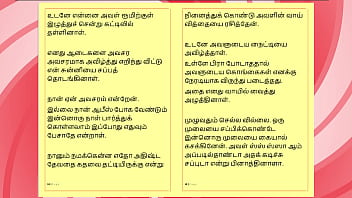 உடனே என்னை அவள் ரூமிற்குள்
இழுத்துச் சென்று கட்டிலில்
தள்ளினாள்.
எனது ஆடைகளை அவசர
அவசரமாக அவிழ்த்து எறிந்து விட்டு
என் சுன்னியை சப்பத்
தொடங்கினாள்.
நான் ஏன் அவசரம் என்றேன்.
இல்லை நான் ஆபீஸ் போக வேண்டும்
இன்னொரு நாள் பார்த்துக்
கொள்வோம் இப்போது எதுவும்
பேசாதே என்றாள்.
நானும் நமக்கென்ன ஏதோ அதிஷ்ட
தேவதை கதவை தட்டியிருக்கு என்று
நினைத்துக் கொண்டு அவளின் வாய்
வித்தையை ரசித்தேன்.
உடனே அவளுடைய நைட்டியை
அவிழ்த்தாள்.
உள்ளே பிரா போடாததால்
அவளுடைய கொங்கைகள் எனக்கு
நேரடியாக விருந்து படைத்தது.
அதை எனது வாயில் வைத்து
அழுத்தினாள்.
முழுவதும் செல்ல வில்லை. ஒரு
முலையை சப்பிக்கொண்டே
இன்னொரு முலையை கையால்
கசக்கினேன். அவள் ஸ்ஸ் ஸ்ஸா ஆம்
அப்படித்தாண்டா அதக் கடிச்சு
சப்புடா என்று பினாத்தினாளா.